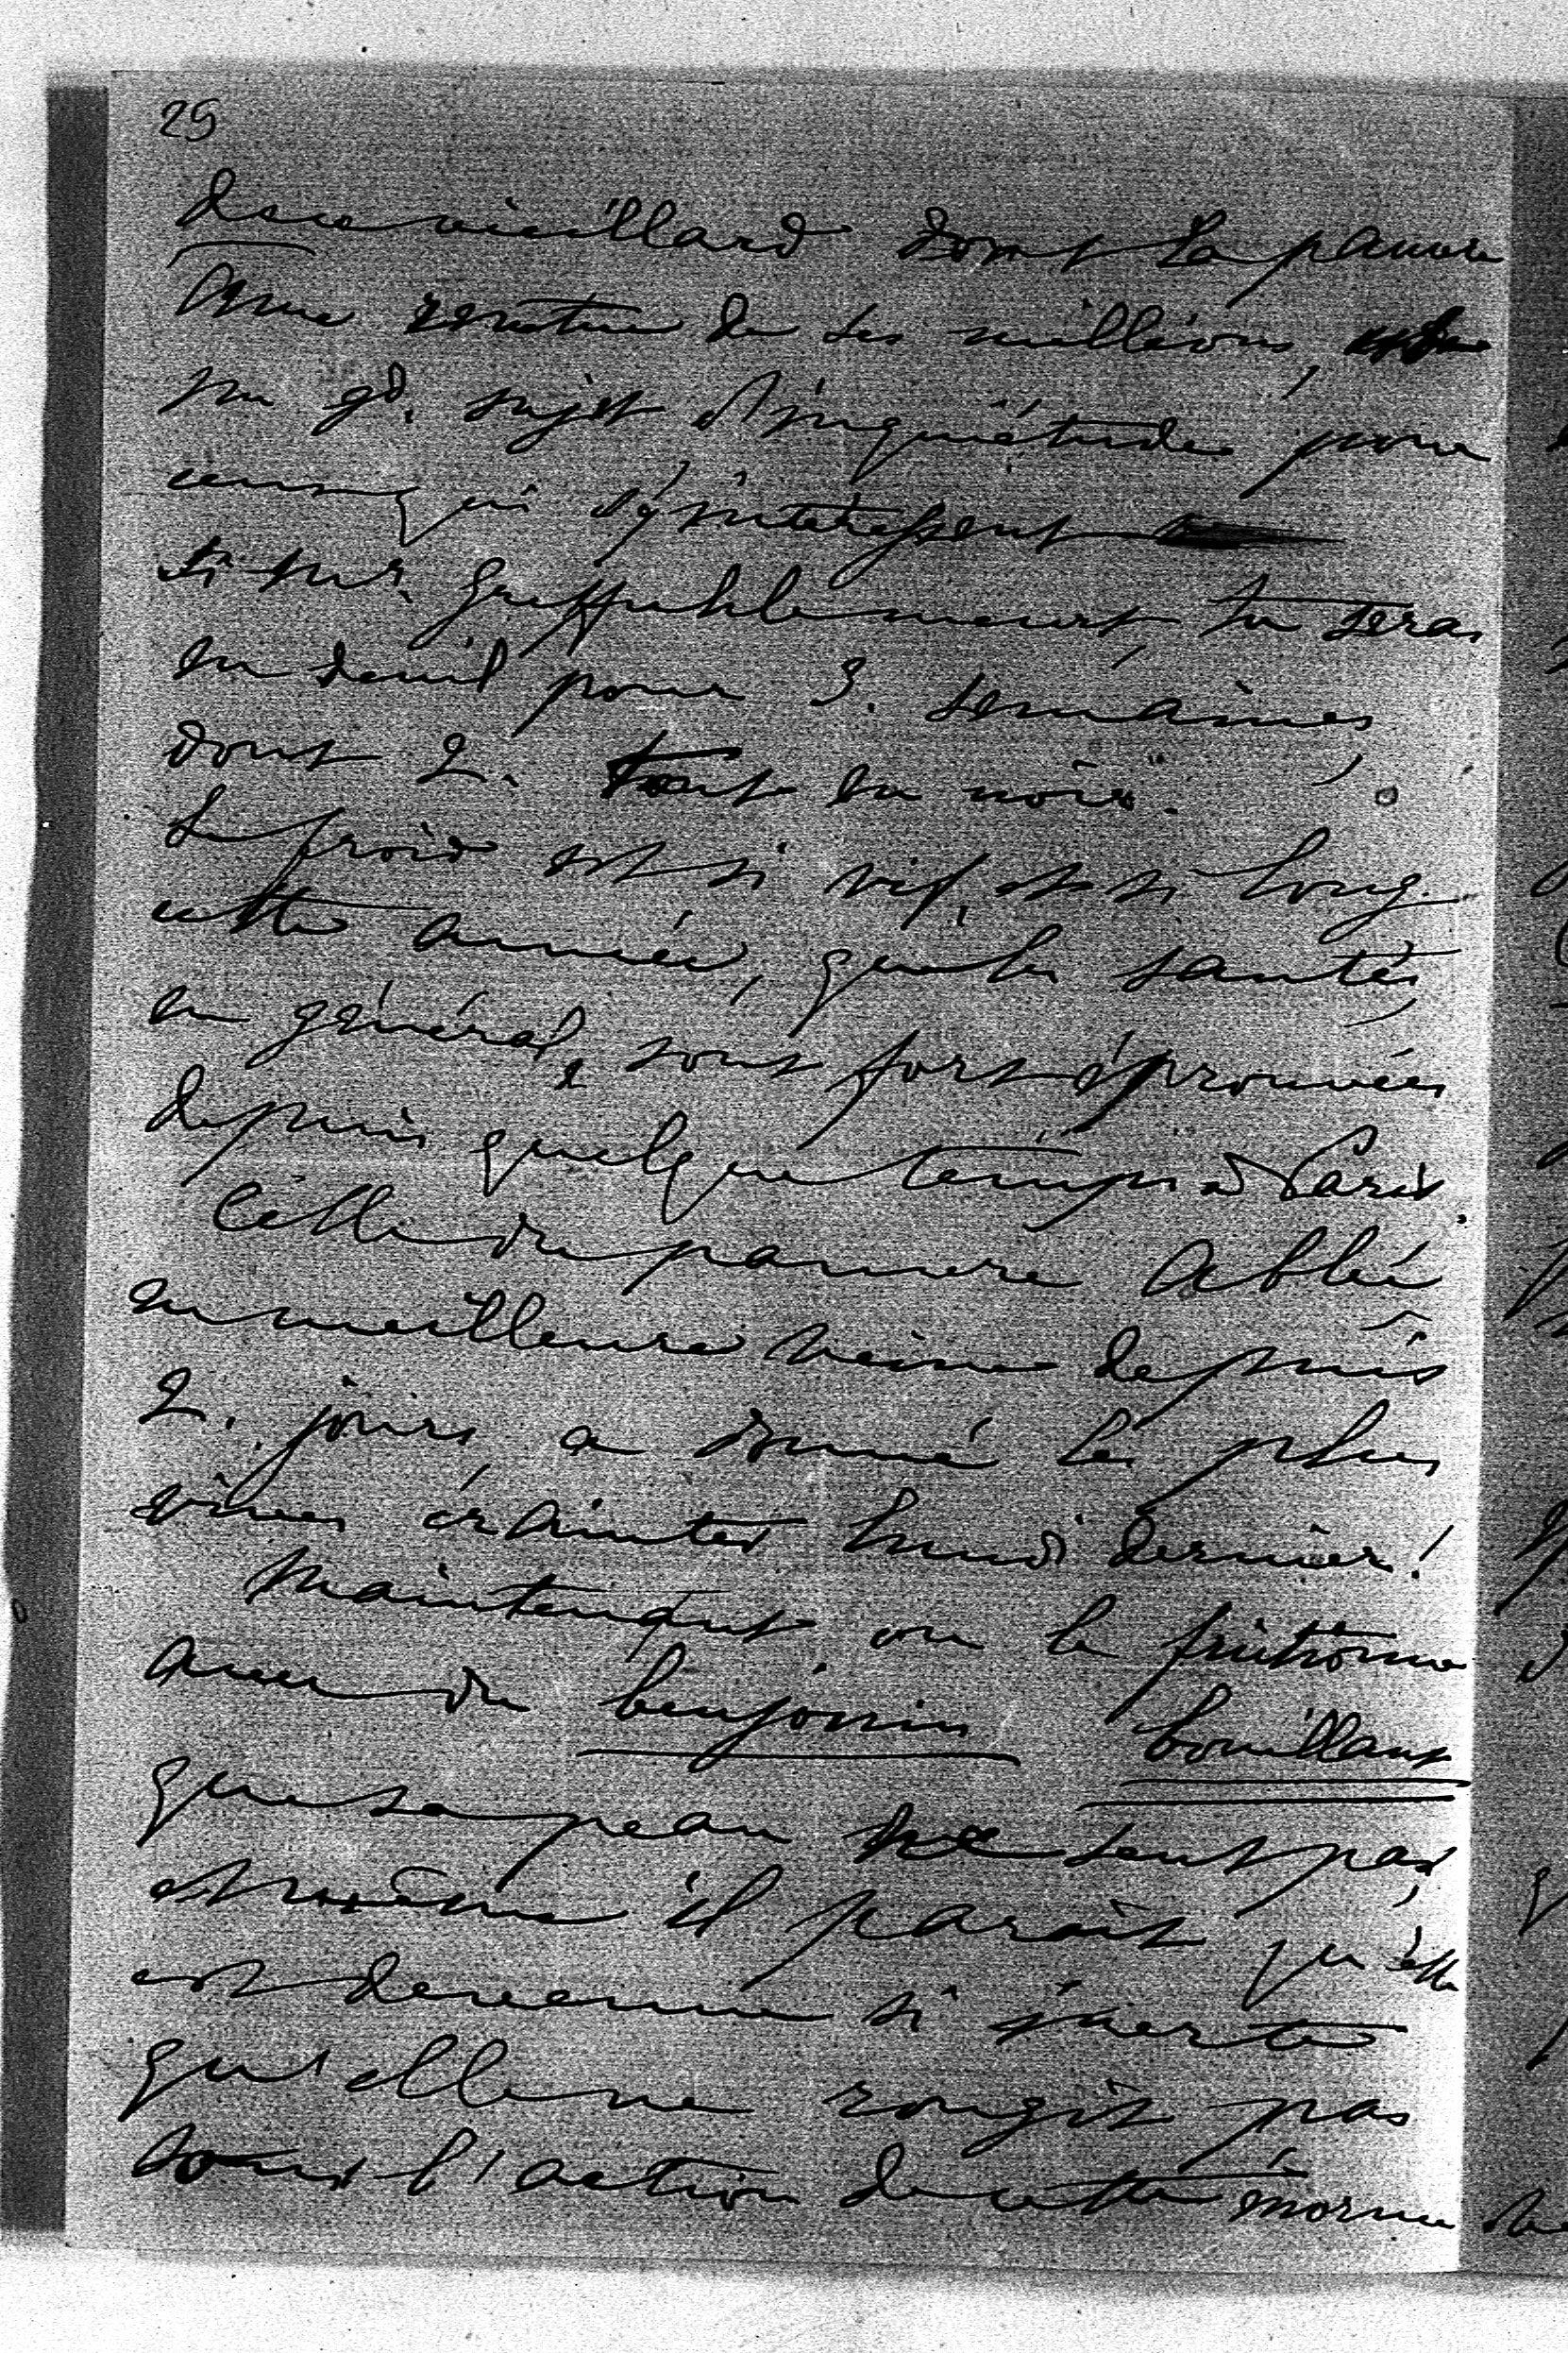 25
de ce vieillard dont la pauvre
âme revêtue de ses millions, est
un gd. sujet d'inquiétude pour
ceux qui s'y intéressent
si Mr. Greffuhle meurt, tu seras
en deuil pour 3. semaines,
dont 2. tout en noir.
Le froid est si vif, et si long
cette année, que les santés,
en général, sont fort éprouvées
depuis quelque temps à Paris.
Celle du pauvre Abbé
en meilleure veine depuis
2. jours, a donné les plus
vives craintes lundi dernier!
Maintenant on le frictionne
avec du benjoin bouillant
que sa peau ne sent pas,
et même il paraît qu'elle
est devenue si inerte
qu'elle ne rougit pas
sous l'action de cette énorme